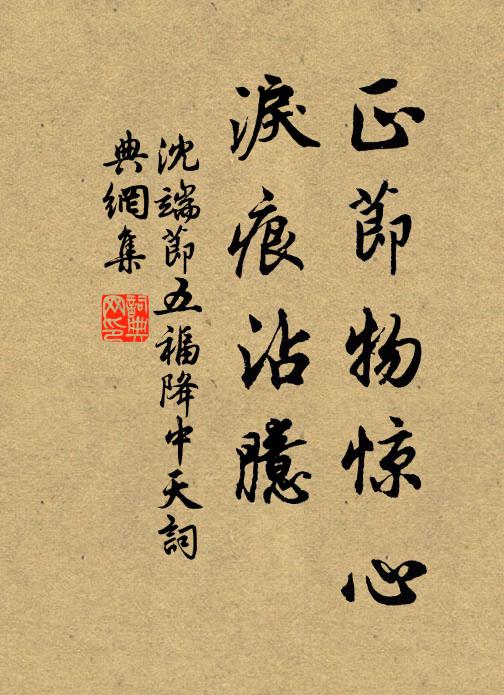 正節物惊心
淚痕沾臆
沈端節五福降中天詞
典網集
詞典
网印